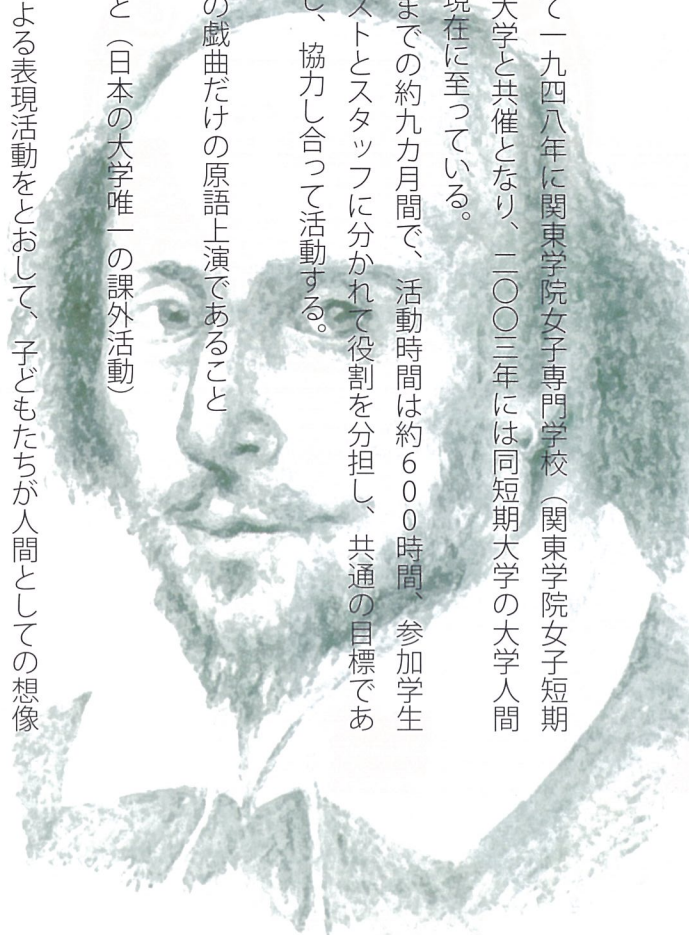 て一九四八年に関東学院女子専門学校（関東学院女子短期
大学と共催となり、二〇〇三年には同短期大学の大学人間
現在に至っている。
までの約九カ月間で、活動時間は約600時間、参加学生
ストとスタッフに分かれて役割を分担し、共通の目標であ
し、協力し合って活動する。
の戯曲だけの原語上演であること
と（日本の大学唯一の課外活動）
よる表現活動をとおして、子どもたちが人間としての想像